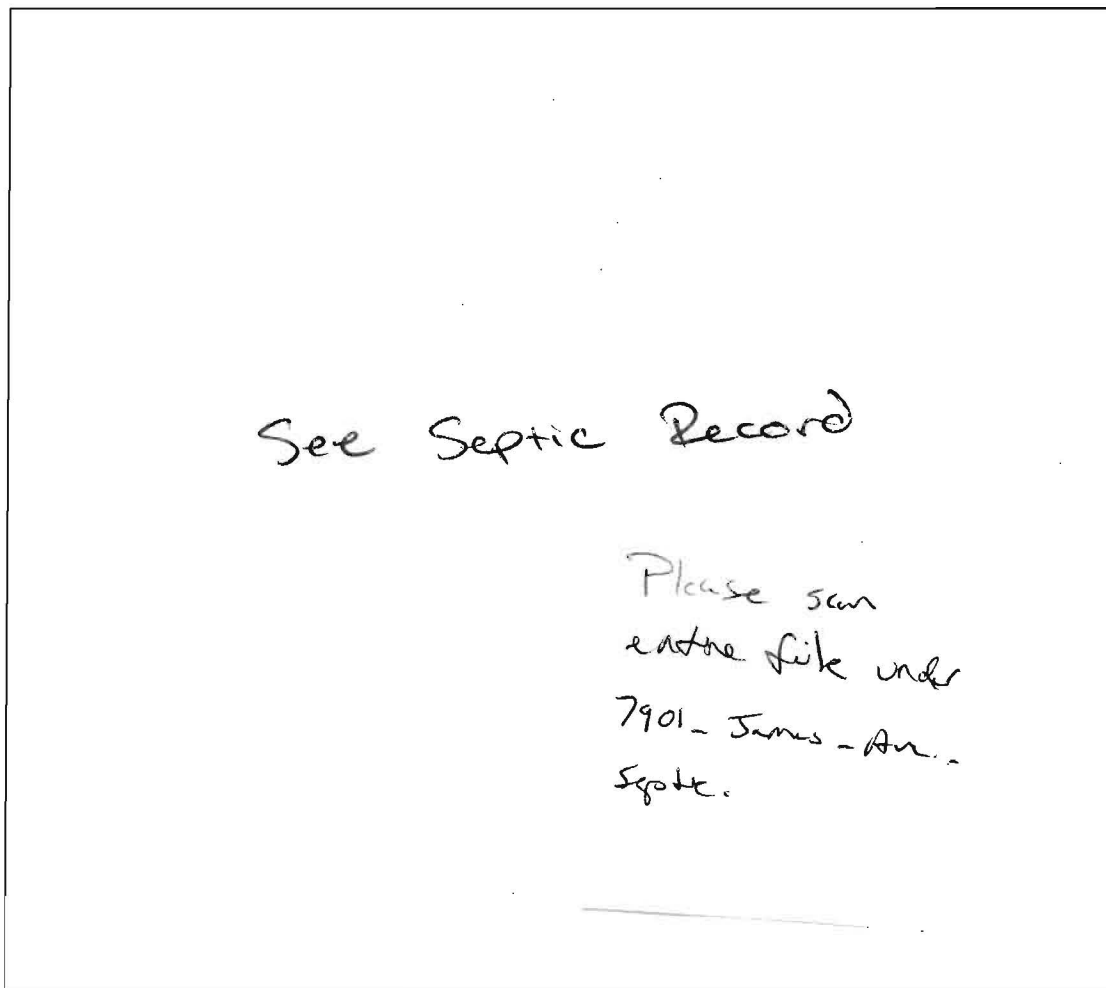 See Septic Record
Please scan
entire file under
7901_James_Ave_
Septic.